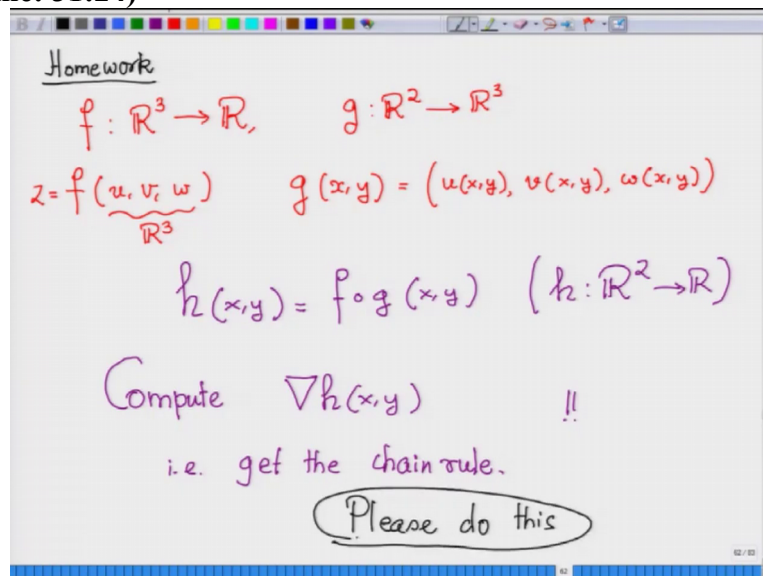 Homework
f : ℝ³ → ℝ, g : ℝ² → ℝ³
z = f(u, v, w) g(x,y) = (u(x,y), v(x,y), w(x,y))
ℝ³
h(x,y) = f∘g (x,y) (h : ℝ² → ℝ)
Compute ∇h(x,y) !!
i.e. get the chain rule.
Please do this
62 / 83
62